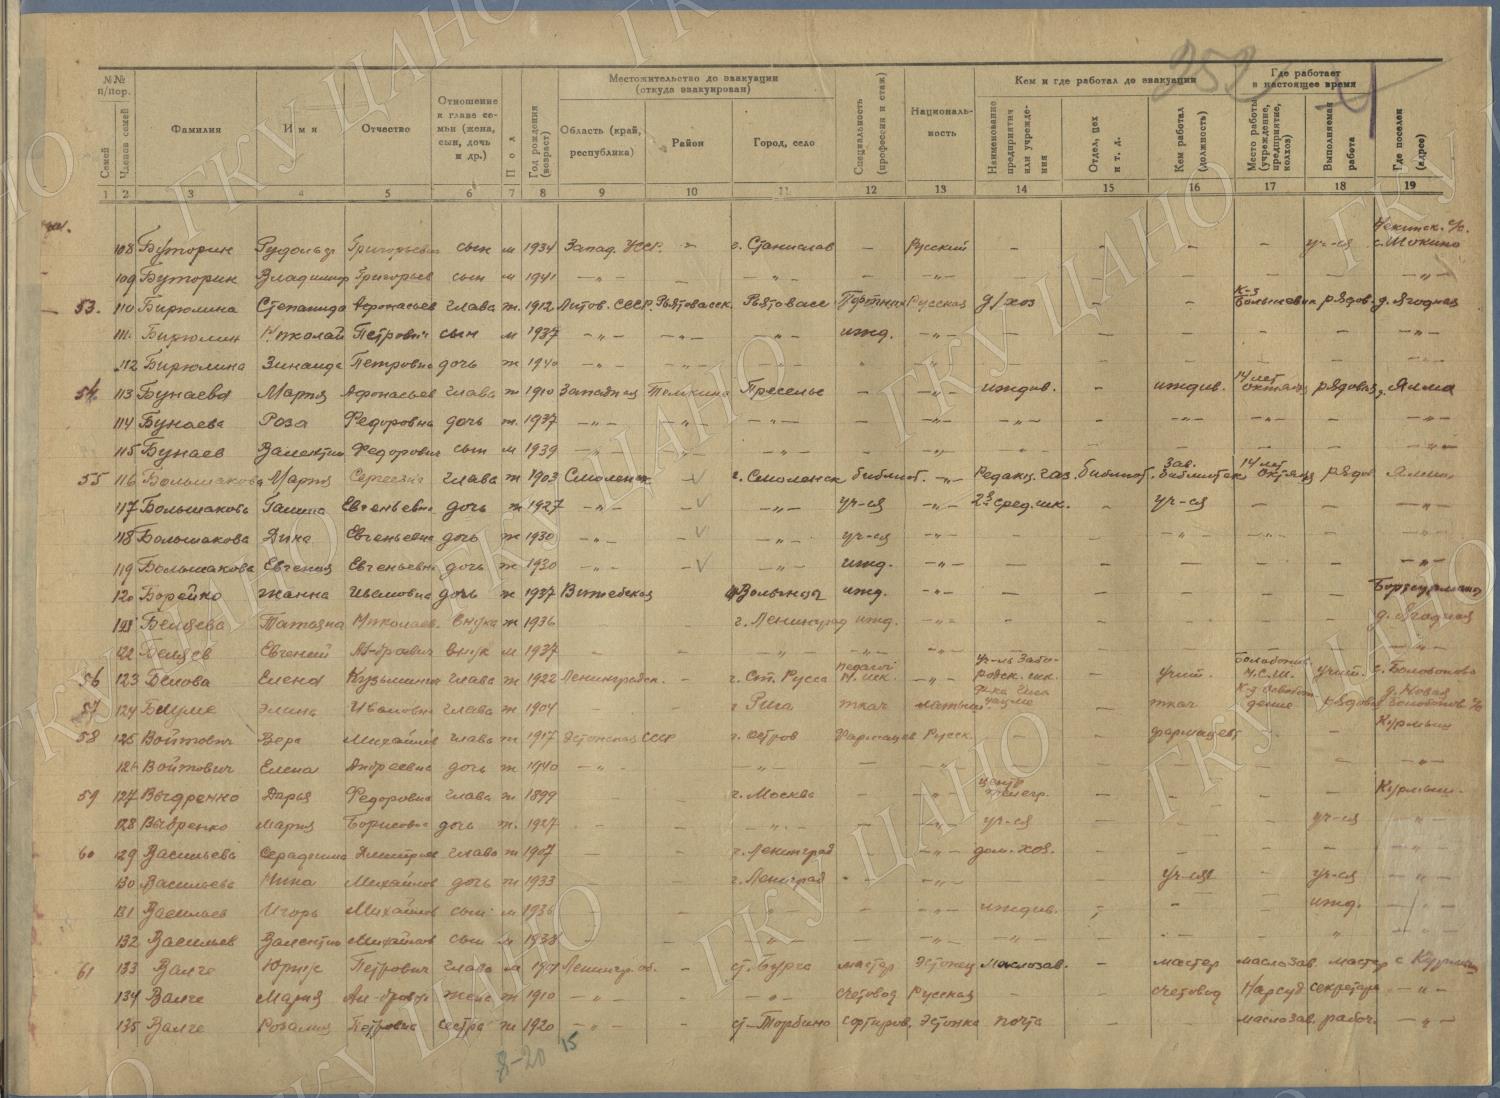 352
№№ п/пор.
Семей
Членов семей
Фамилия
Имя
Отчество
Отношение к главе семьи (жена, сын, дочь и др.)
Пол
Год рождения (возраст)
Местожительство до эвакуации (откуда эвакуирован)
Область (край, республика)
Район
Город, село
Специальность (профессия и стаж)
Националь-ность
Кем и где работал до эвакуации
Наименование предприятия или учреждения
Отдел, цех и т. д.
Кем работал (должность)
Где работает в настоящее время
Место работы (учреждение, предприятие, колхоз)
Выполняемая работа
Где поселен (адрес)
1 2 3 4 5 6 7 8 9 10 11 12 13 14 15 16 17 18 19
108 Буторин Рудольф Григорьевич сын м 1934 Запад. УССР. - г. Станислав - Русский - - - - уч-ся с. Мокино
109 Буторин Владимир Григорьев сын м 1941 -"- -"- - -"- - - - - - -"-
53. 110 Бирюлина Степанида Афонасьев глава ж. 1912 Литов. СССР. Портниха Русская д/хоз - - к-з Большевик рядов. д. Ягодная
111. Бирюлин Николай Петрович сын м 1937 -"- -"- -"- ижд. -"- - - - - - -"-
112 Бирюлина Зинаида Петровна дочь ж 1940
54. 113 Бунаева Мария Афонасьев глава ж 1910 Западная Темкино Пресело - -"- иждив. - иждив. 14 лет Октября рядовая д. Ялма
114 Бунаева Роза Федоровна дочь ж. 1937 -"- -"-
115 Бунаев Валентин Федорович сын м 1939
55 116 Большакова Мария Сергеевна глава ж 1903 Смоленск г. Смоленск библиот. -"- Редакц. газ. библиот. Зав. библиотек 14 лет Октября рядов Ялма
117 Большакова Галина Евгеньевна дочь ж 1927 -"- -"- уч-ся -"- 2я сред. шк. - уч-ся - - -"-
118 Большакова Дина Евгеньевна дочь ж 1930 -"- -"- уч-ся -"-
119 Большакова Евгения Евгеньевна дочь ж 1930 -"- -"- ижд. -"-
120 Борейко Жанна Ивановна дочь ж 1937 Витебская Волынцы ижд. -"- Борзурманы
Беляева Татьяна Николаев. внука ж 1936 г. Ленинград ижд. -"- д. Ягодная
122 Беляев Евгений внук м 1937
56 123 Белова Елена Кузьминич глава ж 1922 Ленинградск. - г. Ст. Русса педагог н. шк. -"- учит. Болобонов. н.с.ш. учит. с. Болобоново
57 124 Блуме Элина Ивановна глава ж 1904 г Рига ткач латыш. - ткач рядовая д. Новая
58 125 Войтович Вера Михайлов глава ж 1917 Эстонская ССР г. Остров Фармацев Русск. - - фармацевт Курмыш
126 Войтович Елена Андреевна дочь ж 1940 -"-
59 127 Выдренко Дарья Федоровна глава ж 1899 г. Москва центр телегр. Курмыш.
128 Выдренко Мария Борисовна дочь ж. 1927 -"- уч-ся уч-ся
60 129 Васильева Серафима Дмитриев глава ж 1907 г. Ленинград дом. хоз.
130 Васильева Нина Михайлов дочь ж 1933 г. Ленинград уч-ся уч-ся
131 Васильев Игорь Михайлов сын м 1936 -"- иждив. ижд.
132 Васильев Валентин Михайлов сын м 1938 -"-
61 133 Валге Юрий Петрович глава м Ленингр. об. - ст. Бурга мастер Эстонец маслозав. - мастер маслозав мастер с Курмыш
134 Валге Мария Ал-бровн жена ж 1910 -"- -"- счетовод Русская - - счетовод Нарсуд секретарь -"-
135 Валге Розалия Петровна сестра ж 1920 -"- ст-Торбино сортиров. Эстонка почта маслозав. рабоч. -"-
8-20 15
ГКУ ЦАНО